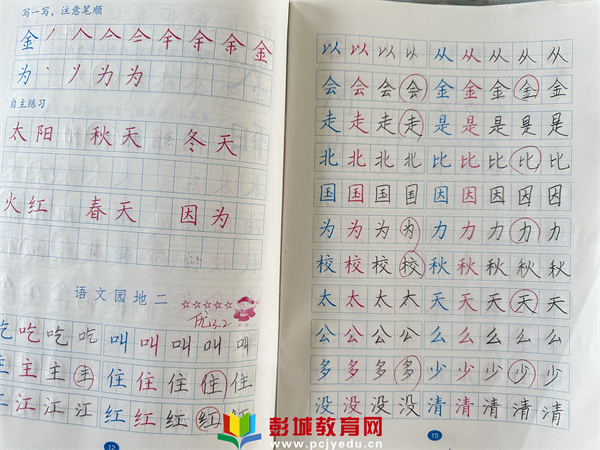 写一写，注意笔顺
金 丿 人 人 今 全 全 金 金
为 丶 丿 为 为
自主练习
太阳 秋天 冬天
火红 春天 因为
语文园地二
☆☆☆☆☆
优 3.2
吃 吃 吃 吃 叫 叫 叫 叫 叫
主 主 主 主 住 住 住 住 住
江 江 江 江 红 红 红 红 红
12
以 以 以 以 从 从 从 从 从
会 会 会 会 金 金 金 金 金
走 走 走 走 是 是 是 是 是
北 北 北 北 比 比 比 比 比
国 国 国 国 因 因 因 因 因
为 为 为 为 力 力 力 力 力
校 校 校 校 秋 秋 秋 秋 秋
太 太 太 太 天 天 天 天 天
公 公 公 公 么 么 么 么 么
多 多 多 多 少 少 少 少 少
没 没 没 没 清 清 清 清 清
15
彭城教育网
www.pcjyedu.cn